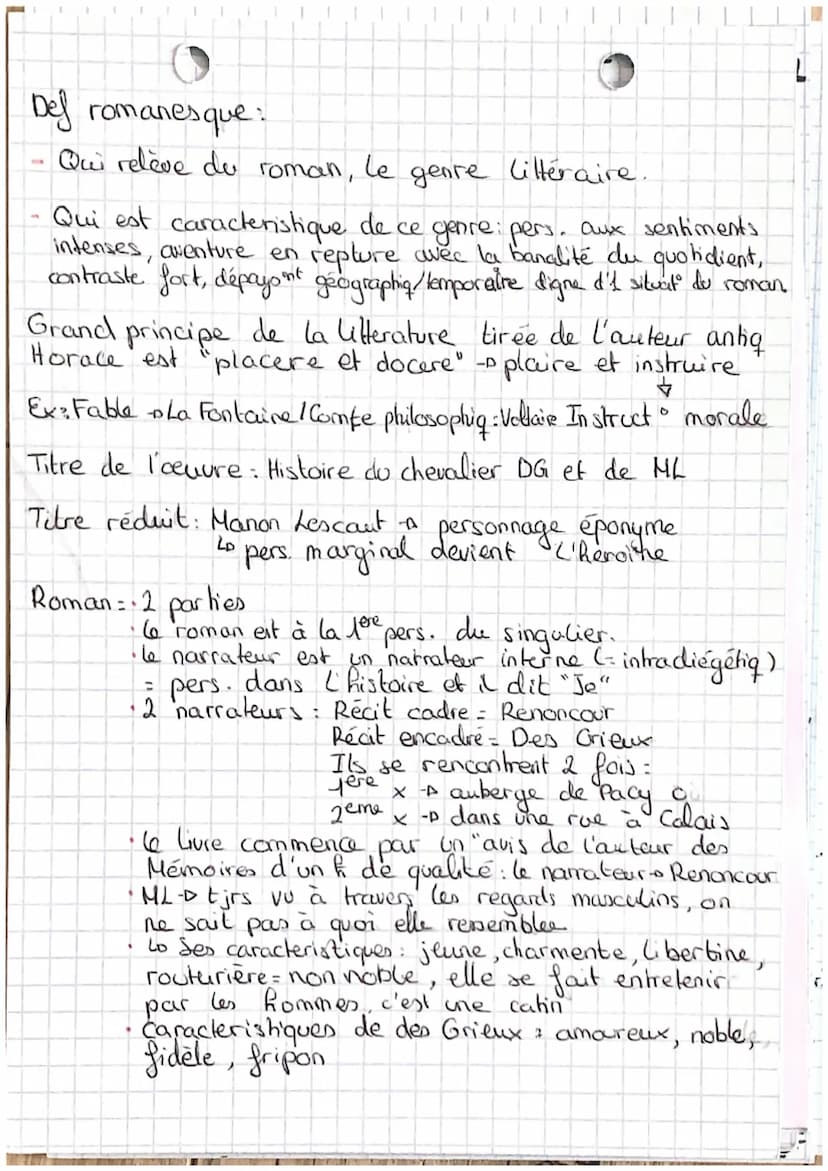 Def romanesque:
- Qui relève du roman, le genre littéraire.
- Qui est caracteristique de ce genre: pers. aux sentiments
intenses, aventure en repture avec la banalité du quotidient,
contraste fort, dépaysmt géographiq/temporelre digne d'1 situat° du roman
Grand principe de la litterature tirée de l'auteur antiq
Horace est "placere et docere" → plaire et instruire
Ex: Fable → La Fontaine / Comte philosophiq: Voltaire Instruct° morale
Titre de l'œuvre: Histoire du chevalier DG et de ML
Titre réduit: Manon Lescaut → personnage éponyme
↳ pers. marginal devient L'héroïne
Roman = · 2 parties
· le roman est à la 1ère pers. du singulier.
· le narrateur est un narrateur interne (= intradiégétiq)
= pers. dans l'histoire et il dit "Je"
· 2 narrateurs: Récit cadre = Renoncour
Récit encadré = Des Grieux
Ils se rencontrent 2 fois:
1ère x → auberge de Pacy
2eme x → dans une rue à Calais
· le livre commence par un "avis de l'auteur des
Mémoires d'un h de qualité: le narrateur → Renoncour
· ML → tjrs vu à travers les regards masculins, on
ne sait pas à quoi elle ressemblee
· ↳ Ses caracteristiques: jeune, charmente, libertine,
routurière = non noble, elle se fait entretenir
par les hommes, c'est une catin
· Caracteristiques de des Grieux: amoureux, noble,
fidèle, fripon